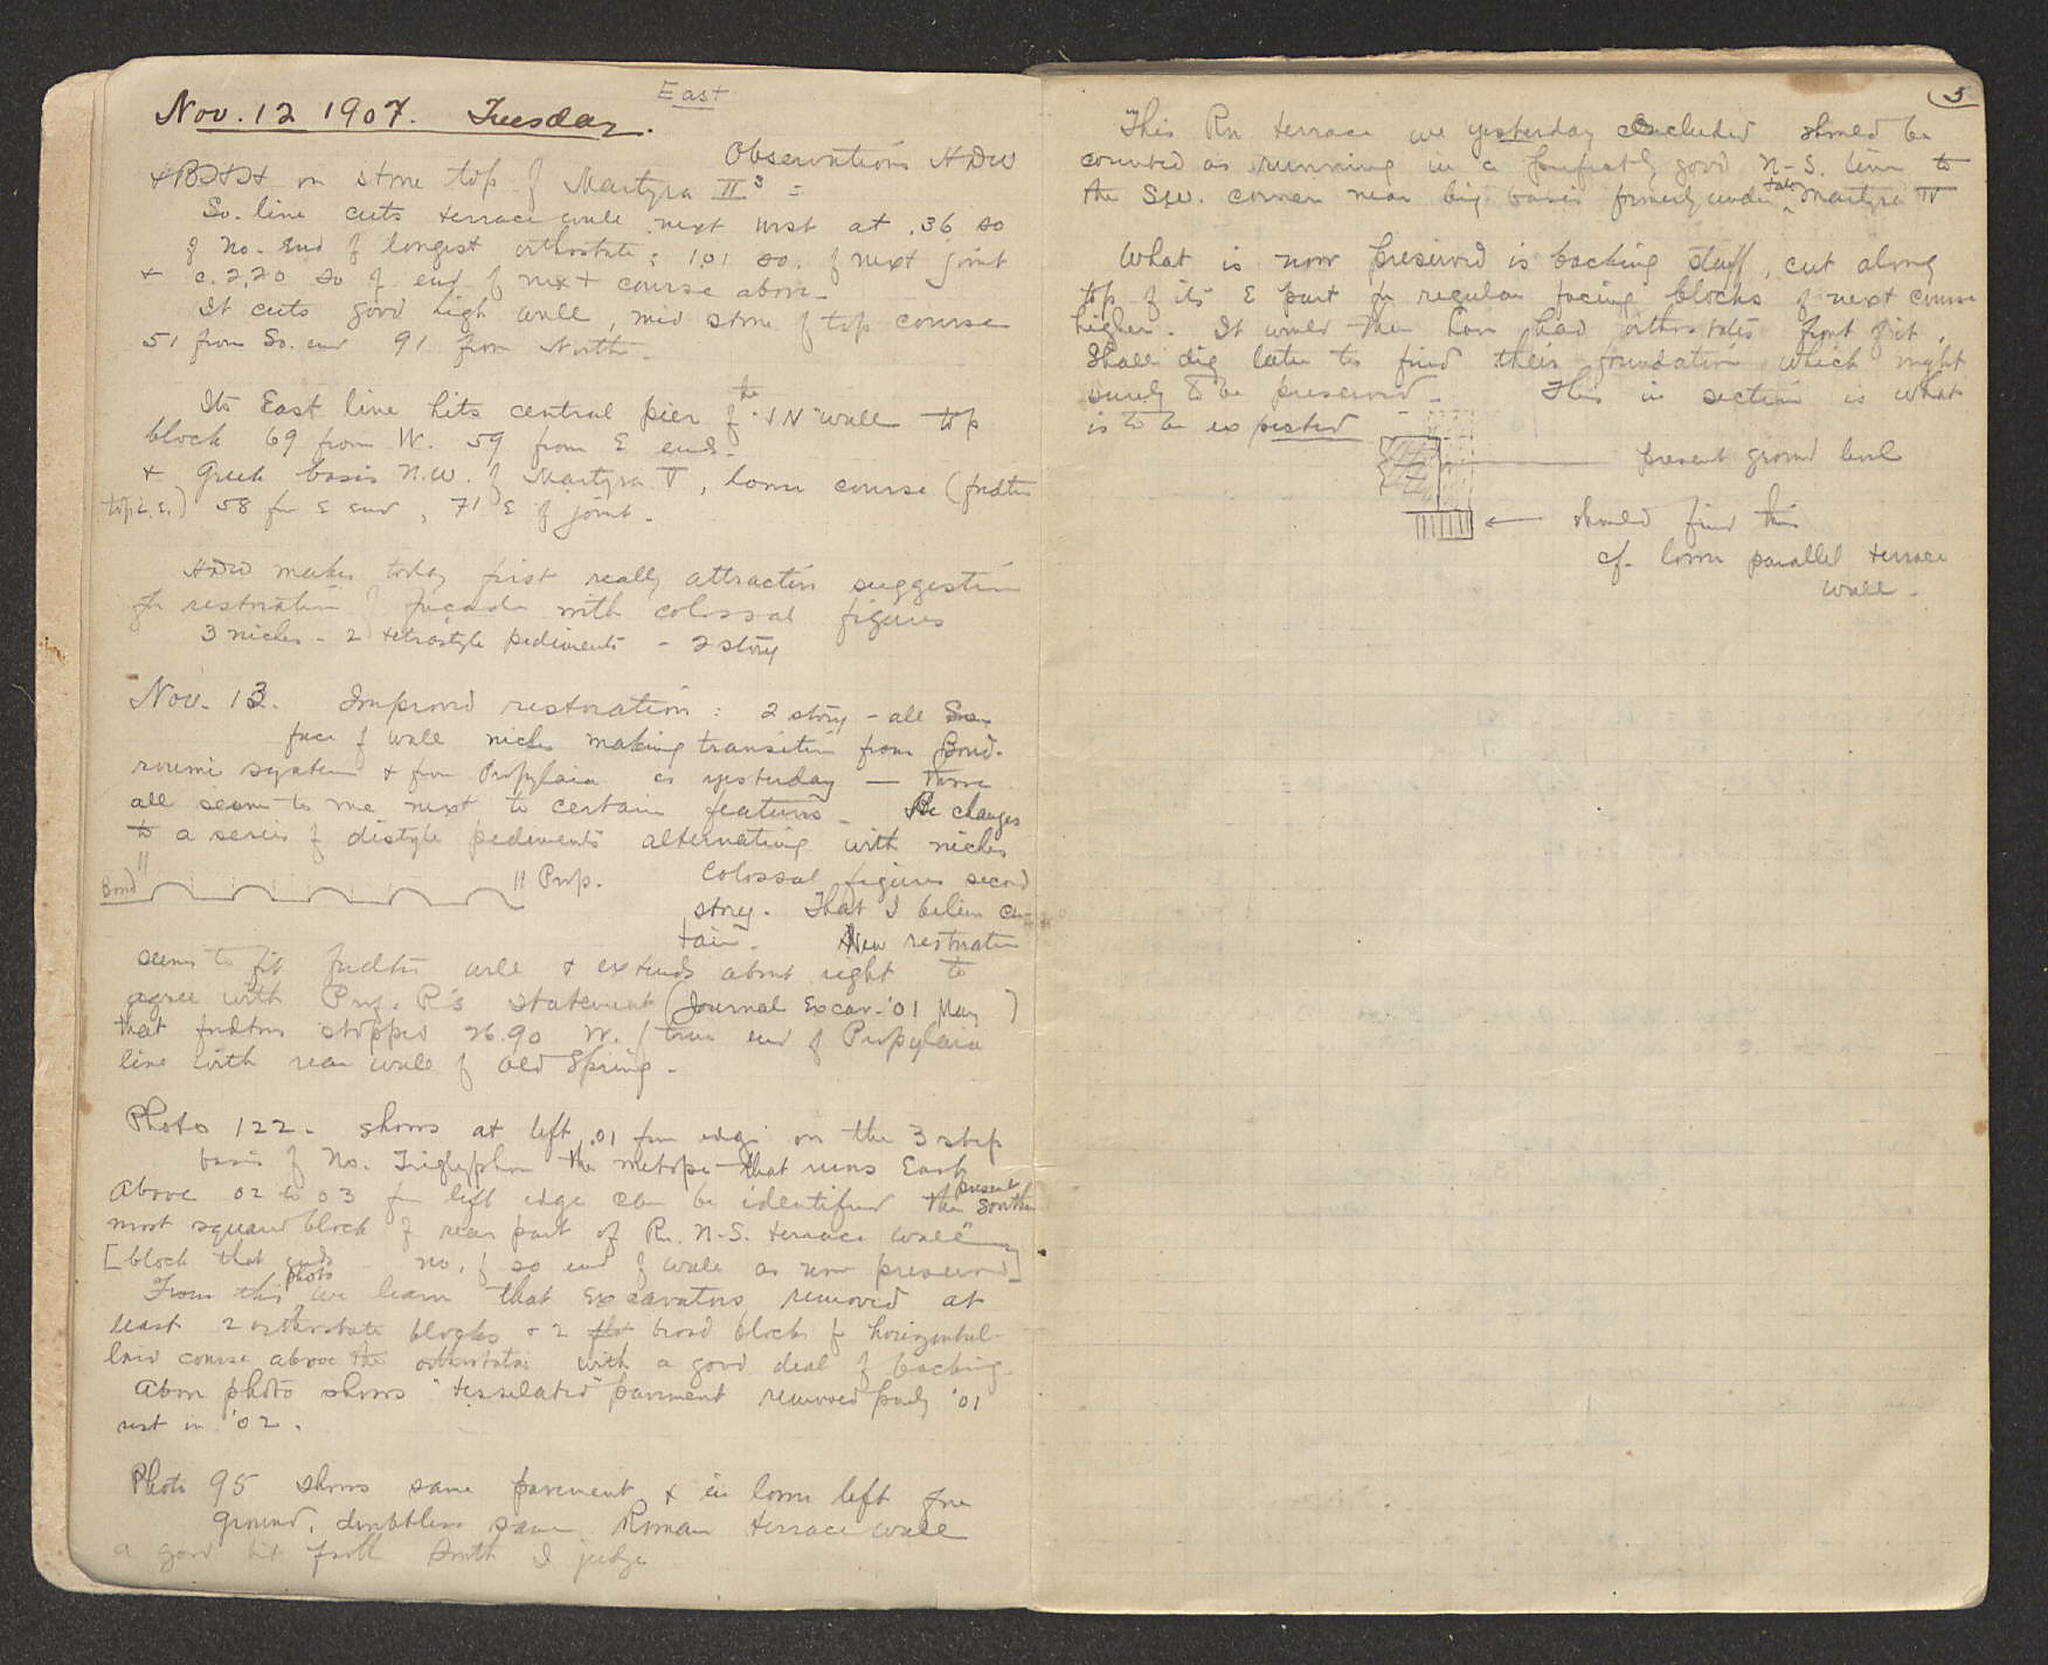 East
Nov. 12 1907. Tuesday.
Observations HDW
on stone top of Martyra II³ =
So. line cuts terrace wall next west at .36 so
of no. end of longest orthostate; 1.01 so. of next joint
+ c. 2.20 so of end of next course above.
It cuts good high wall, mid stone of top course
51 from So. end 91 from North.
Its East line hits central pier of the "N" wall top
block 69 from W. 59 from E end.
+ Greek basis N.W. of Martyra V, lower course (fndtn
top i.e.) 58 fr E end, 71 E of joint.
HDW makes today first really attractive suggestion
for restoration of façade with colossal figures
3 niches - 2 tetrastyle pediments - 2 story
Nov. 13. Improved restoration: 2 story - all
face of wall niches making transition from Boud-
roumi system + from Propylaia as yesterday — These
all seem to me next to certain features. He changes
to a series of distyle pediments alternating with niches
Boud
Prop.
Colossal figures second
story. That I believe cer-
tain. New restoration
seems to fit fndtn wall + extends about right to
agree with Prof. R's statement (Journal Excav. '01 May)
that fndtns stopped 26.90 W. of true end of Propylaia
line with rear wall of Old Spring.
Photo 122. shows at left, .01 from edge on the 3 step
basis of No. Triglyphon the metope that runs East
Above 02 to 03 fr left edge can be identified the present South
most square block of rear part of Rn. N-S. terrace wall
[block that ends no. of so end of wall as now preserved]
From this photo we learn that excavators removed at
least 2 orthostate blocks + 2 flat broad blocks fr horizontal-
laid course above the orthostates with a good deal of backing
Above photo shows "tesselated" pavement removed partly '01
rest in '02.
Photo 95 shows same pavement + in lower left fore
ground, doubtless same Roman terrace wall
a good bit South I judge
5
This Rn terrace we yesterday concluded should be
counted as running in a perfectly good N-S. line to
the S.W. corner near big basis formerly under Martyra IV
What is now preserved is backing stuff, cut along
top of its E part for regular facing blocks of next course
higher. It would then have had orthostates front of it.
Shall dig later to find their foundation which might
surely to be preserved. This in section is what
is to be expected
present ground level
should find this
cf. lower parallel terrace
wall.